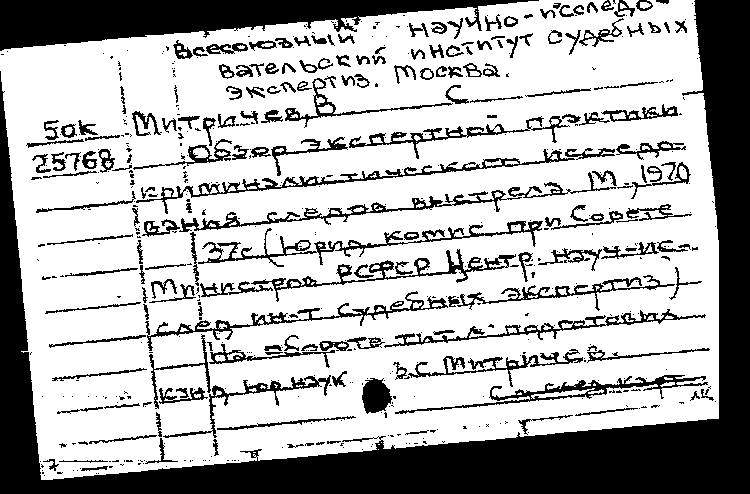 Всесоюзный научно-исследо-
вательский институт судебных
экспертиз. Москва.
50к Митричев, В С
25768 Обзор экспертной практики
криминалистического исследо-
вания следов выстрела. М., 1970
37с (Юрид. комис при Совете
Министров РСФСР Центр. науч-ис-
след ин-т судебных экспертиз)
На обороте тит. л.: подготовил
канд юр наук В.С. Митричев.
См след карт